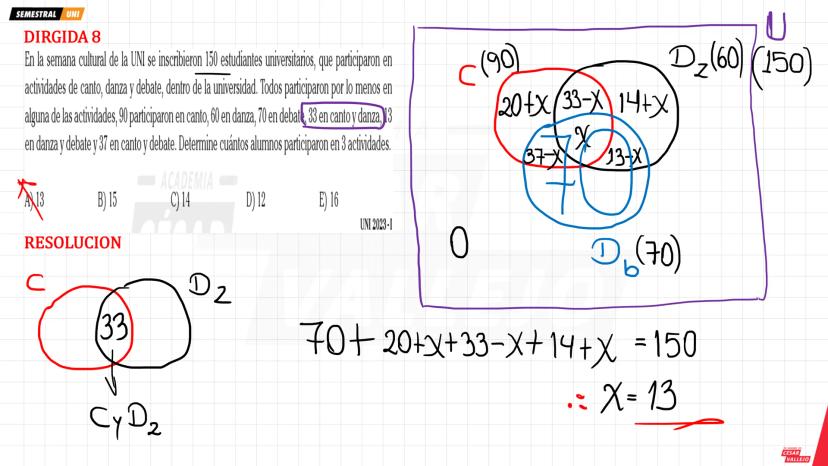 SEMESTRAL UNI
DIRGIDA 8
En la semana cultural de la UNI se inscribieron 150 estudiantes universitarios, que participaron en
actividades de canto, danza y debate, dentro de la universidad. Todos participaron por lo menos en
alguna de las actividades, 90 participaron en canto, 60 en danza, 70 en debate, 33 en canto y danza, 13
en danza y debate y 37 en canto y debate. Determine cuántos alumnos participaron en 3 actividades.
A) 13 B) 15 C) 14 D) 12 E) 16
UNI 2023-I
RESOLUCION
C D2
33
C y D2
U
C (90) D2 (60) (150)
20+x 33-x 14+x
x
37-x 13-x
70
0
Db (70)
70+ 20+x+33-x+14+x = 150
∴ x = 13
ACADEMIA
CESAR
VALLEJO